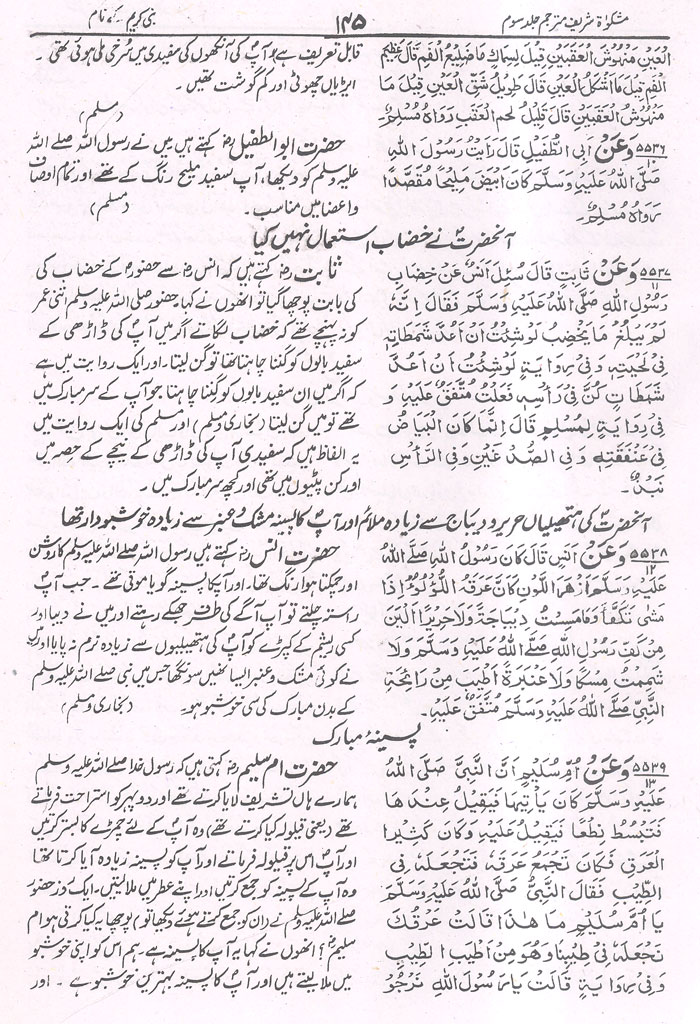 مشکوٰۃ شریف مترجم جلد سوم
۱۴۵
بنی کریم کے نام
الْعَيْنِ مَنْهُوشَ الْعَقِبَيْنِ قِيلَ لِسِمَاكٍ مَا ضَلِيعُ الْفَمِ قَالَ عَظِيمُ
الْفَمِ قِيلَ مَا أَشْكَلُ الْعَيْنِ قَالَ طَوِيلُ شَقِّ الْعَيْنِ قِيلَ مَا
مَنْهُوشُ الْعَقِبَيْنِ قَالَ قَلِيلُ لَحْمِ الْعَقِبِ رَوَاهُ مُسْلِمٌ
۵۵۳۶ ۱۰ وَعَنْ أَبِي الطُّفَيْلِ قَالَ رَأَيْتُ رَسُولَ اللهِ
صَلَّى اللهُ عَلَيْهِ وَسَلَّمَ كَانَ أَبْيَضَ مَلِيحًا مُقَصَّدًا
رَوَاهُ مُسْلِمٌ۔
قابل تعریف ہے) اور آپؐ کی آنکھوں کی سفیدی میں سُرخی ملی ہوئی تھی۔
ایڑیاں چھوٹی اور کم گوشت تھیں۔
(مسلم)
حضرت ابو الطفیلؓ کہتے ہیں میں نے رسول اللہ صلے اللہ
علیہ وسلم کو دیکھا، آپؐ سفید ملیح رنگ کے تھے اور تمام اوصاف
و اعضا میں مناسب۔ (مسلم)
آنحضرتؐ نے خضاب استعمال نہیں کیا
۵۵۳۷ ۱۱ وَعَنْ ثَابِتٍ قَالَ سُئِلَ أَنَسٌ عَنْ خِضَابِ
رَسُولِ اللهِ صَلَّى اللهُ عَلَيْهِ وَسَلَّمَ فَقَالَ إِنَّهُ
لَمْ يَبْلُغْ مَا يَخْضِبُ لَوْ شِئْتُ أَنْ أَعُدَّ شَمَطَاتِهِ
فِي لِحْيَتِهِ وَفِي رِوَايَةٍ لَوْ شِئْتُ أَنْ أَعُدَّ
شَمَطَاتٍ كُنَّ فِي رَأْسِهِ فَعَلْتُ مُتَّفَقٌ عَلَيْهِ وَ
فِي رِوَايَةٍ لِمُسْلِمٍ قَالَ إِنَّمَا كَانَ الْبَيَاضُ
فِي عَنْفَقَتِهِ وَفِي الصُّدْغَيْنِ وَفِي الرَّأْسِ
نَبْذٌ۔
ثابتؓ کہتے ہیں کہ انسؓ سے حضورؐ کے خضاب کی
کی بابت پوچھا گیا تو انھوں نے کہا حضور صلی اللہ علیہ وسلم اتنی عمر
کو نہ پہنچے تھے کہ خضاب لگاتے اگر میں آپؐ کی ڈاڑھی کے
سفید بالوں کو گننا چاہتا تھا تو گن لیتا۔ اور ایک روایت میں ہے
کہ اگر میں ان سفید بالوں کو گننا چاہتا جو آپ کے سر مبارک میں
تھے تو میں گن لیتا (بخاری و مسلم) اور مسلم کی ایک روایت میں
یہ الفاظ ہیں کہ سفیدی آپ کی ڈاڑھی کے نیچے کے حصہ میں
اور کن پٹیوں میں تھی اور کچھ سر مبارک میں۔
آنحضرتؐ کی ہتھیلیاں حریر و دیباج سے زیادہ ملائم اور آپؐ کا پسینہ مشک و عنبر سے زیادہ خوشبودار تھا
۵۵۳۸ ۱۲ وَعَنْ أَنَسٍ قَالَ كَانَ رَسُولُ اللهِ صَلَّے اللهُ
عَلَيْهِ وَسَلَّمَ أَزْهَرَ اللَّوْنِ كَانَ عَرَقُهُ اللُّؤْلُؤُ إِذَا
مَشَى تَكَفَّأَ وَمَا مَسِسْتُ دِيبَاجَةً وَلَا حَرِيرًا أَلْيَنَ
مِنْ كَفِّ رَسُولِ اللهِ صَلَّے اللهُ عَلَيْهِ وَسَلَّمَ وَلَا
شَمِمْتُ مِسْكًا وَلَا عَنْبَرَةً أَطْيَبَ مِنْ رَائِحَةِ
النَّبِيِّ صَلَّے اللهُ عَلَيْهِ وَسَلَّمَ مُتَّفَقٌ عَلَيْهِ۔
حضرت انسؓ کہتے ہیں رسول اللہ صلے اللہ علیہ وسلم کا روشن
اور چمکتا ہوا رنگ تھا۔ اور آپکا پسینہ گویا موتی تھے۔ جب آپؐ
راستہ چلتے تو آپ آگے کی طرف جھکے رہتے اور میں نے دیبا اور
کسی ریشم کے کپڑے کو آپؐ کی ہتھیلیوں سے زیادہ نرم نہ پایا اور
نے کوئی مشک و عنبر ایسا نہیں سونگھا جس میں نبی صلے اللہ علیہ وسلم
کے بدن مبارک کی سی خوشبو ہو۔ (بخاری و مسلم)
پسینۂ مبارک
۵۵۳۹ ۱۳ وَعَنْ أُمِّ سُلَيْمٍ أَنَّ النَّبِيَّ صَلَّى اللهُ
عَلَيْهِ وَسَلَّمَ كَانَ يَأْتِيهَا فَيَقِيلُ عِنْدَهَا
فَتَبْسُطُ نِطْعًا فَيَقِيلُ عَلَيْهِ وَكَانَ كَثِيرَ
الْعَرَقِ فَكَانَتْ تَجْمَعُ عَرَقَهُ فَتَجْعَلُهُ فِي
الطِّيبِ فَقَالَ النَّبِيُّ صَلَّى اللهُ عَلَيْهِ وَسَلَّمَ
يَا أُمَّ سُلَيْمٍ مَا هٰذَا قَالَتْ عَرَقُكَ
نَجْعَلُهُ فِي طِيبِنَا وَهُوَ مِنْ أَطْيَبِ الطِّيبِ
وَفِي رِوَايَةٍ قَالَتْ يَا رَسُولَ اللهِ نَرْجُو
حضرت ام سلیمؓ کہتی ہیں کہ رسول خدا صلے اللہ علیہ وسلم
ہمارے ہاں تشریف لایا کرتے تھے اور دوپہر کو استراحت فرماتے
تھے (یعنی قیلولہ کیا کرتے تھے) وہ آپؐ کے لئے چمڑے کا بستر کرتیں
اور آپؐ اس پر قیلولہ فرماتے اور آپ کو پسینہ زیادہ آیا کرتا تھا
وہ آپؐ کے پسینہ کو جمع کرتیں اور اپنے عطر میں ملاتیں۔ ایک روز حضور
صلے اللہ علیہ وسلم نے (ان کو جمع کرتے ہوئے دیکھا تو) پوچھا۔ یہ کیا کرتی ہو ام
سلیمؓ؟ انھوں نے کہا یہ آپؐ کا پسینہ ہے۔ ہم اس کو اپنی خوشبو
میں ملا لیتے ہیں اور آپؐ کا پسینہ بہترین خوشبو ہے۔ اور